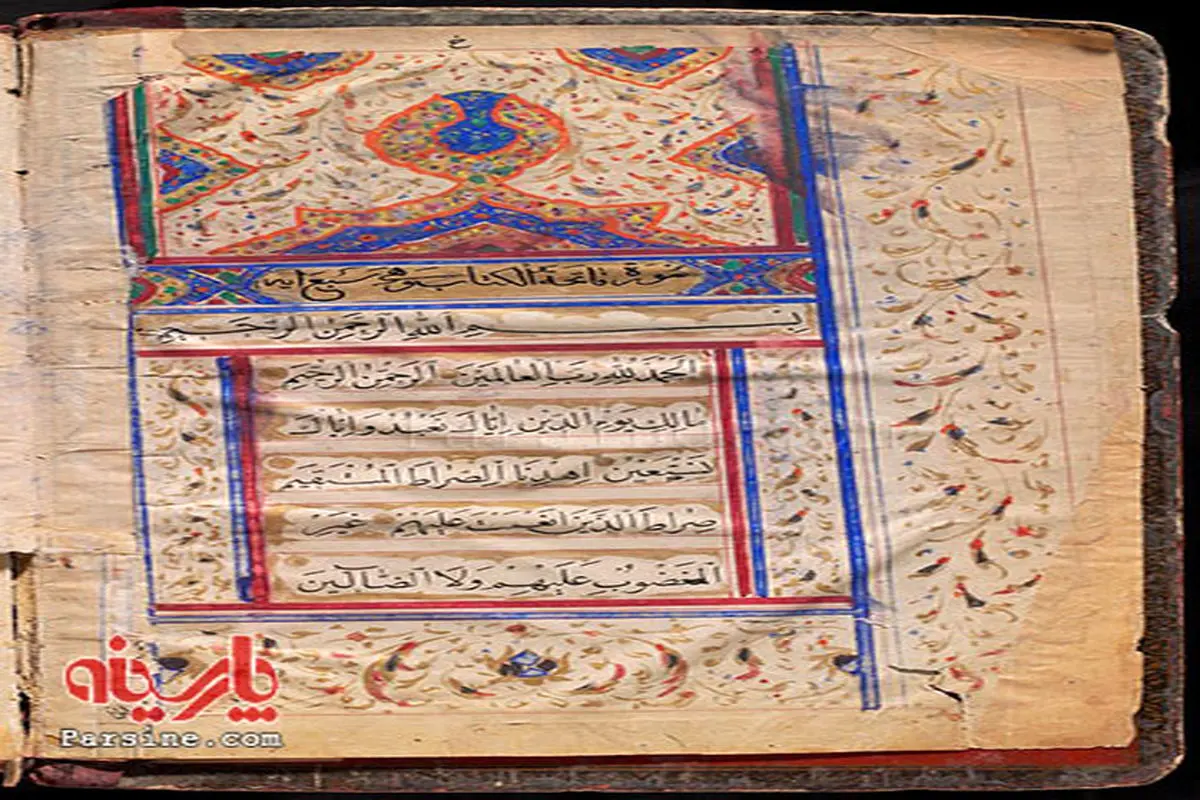 خ
سورة فاتحة الكتاب وهي سبع آية
بسم الله الرحمن الرحيم
الحمد لله رب العالمين الرحمن الرحيم
مالك يوم الدين إياك نعبد وإياك
نستعين اهدنا الصراط المستقيم
صراط الذين أنعمت عليهم غير
المغضوب عليهم ولا الضالين
پارسینه
Parsine.com